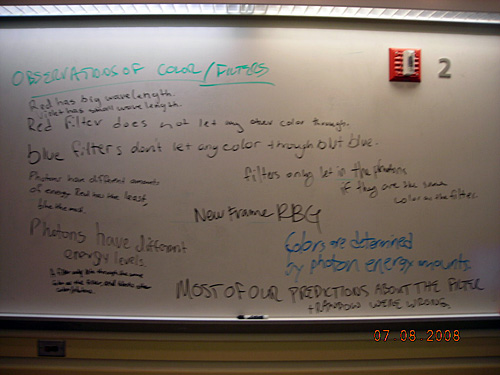 OBSERVATIONS OF COLOR/FILTERS
2
Red has big wavelength.
violet has small wavelength.
Red filter does not let any other color through.
blue filters don't let any color through but blue.
Photons have different amounts
of energy Red has the least,
blue the most.
filters only let in the photons
if they are the same
color as the filter
New Frame RBG
Photons have different
energy levels.
Colors are determined
by photon energy amounts.
A filter only lets through the same
color as the filter and blocks other
MOST OF OUR PREDICTIONS ABOUT THE FILTER
+ RAINBOW WERE WRONG.
07.08.2008